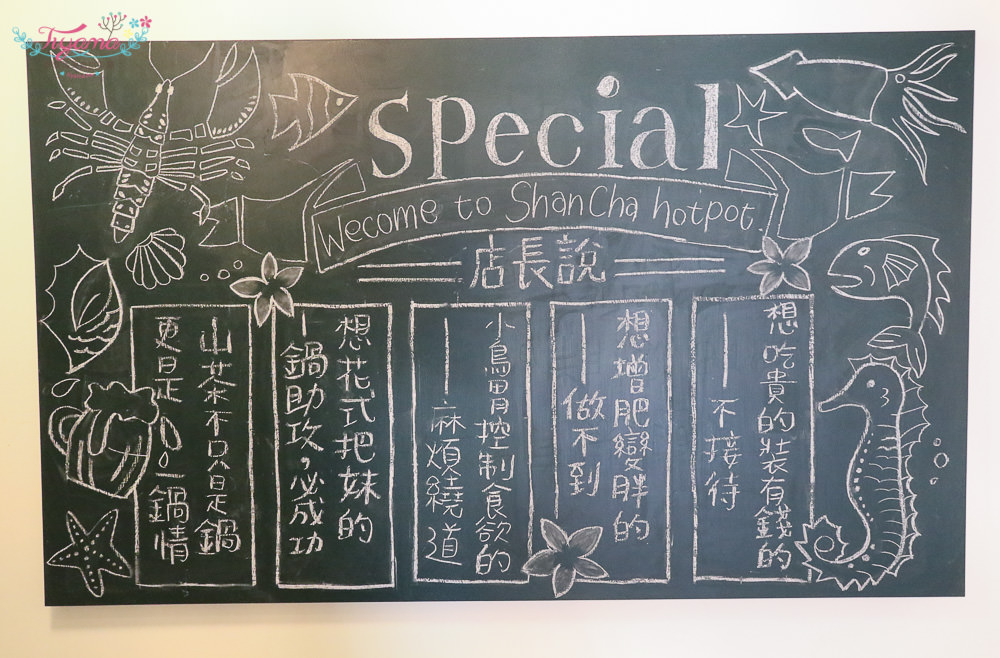 Tiyama
Special
Wecome to ShanCha hotpot.
店長說
想吃貴的裝有錢的
—不接待
想增肥變胖的
—做不到
小鳥胃控制食欲的
—麻煩繞道
想花式把妹的
一鍋助攻,必成功
山茶不只是鍋
更是一鍋情